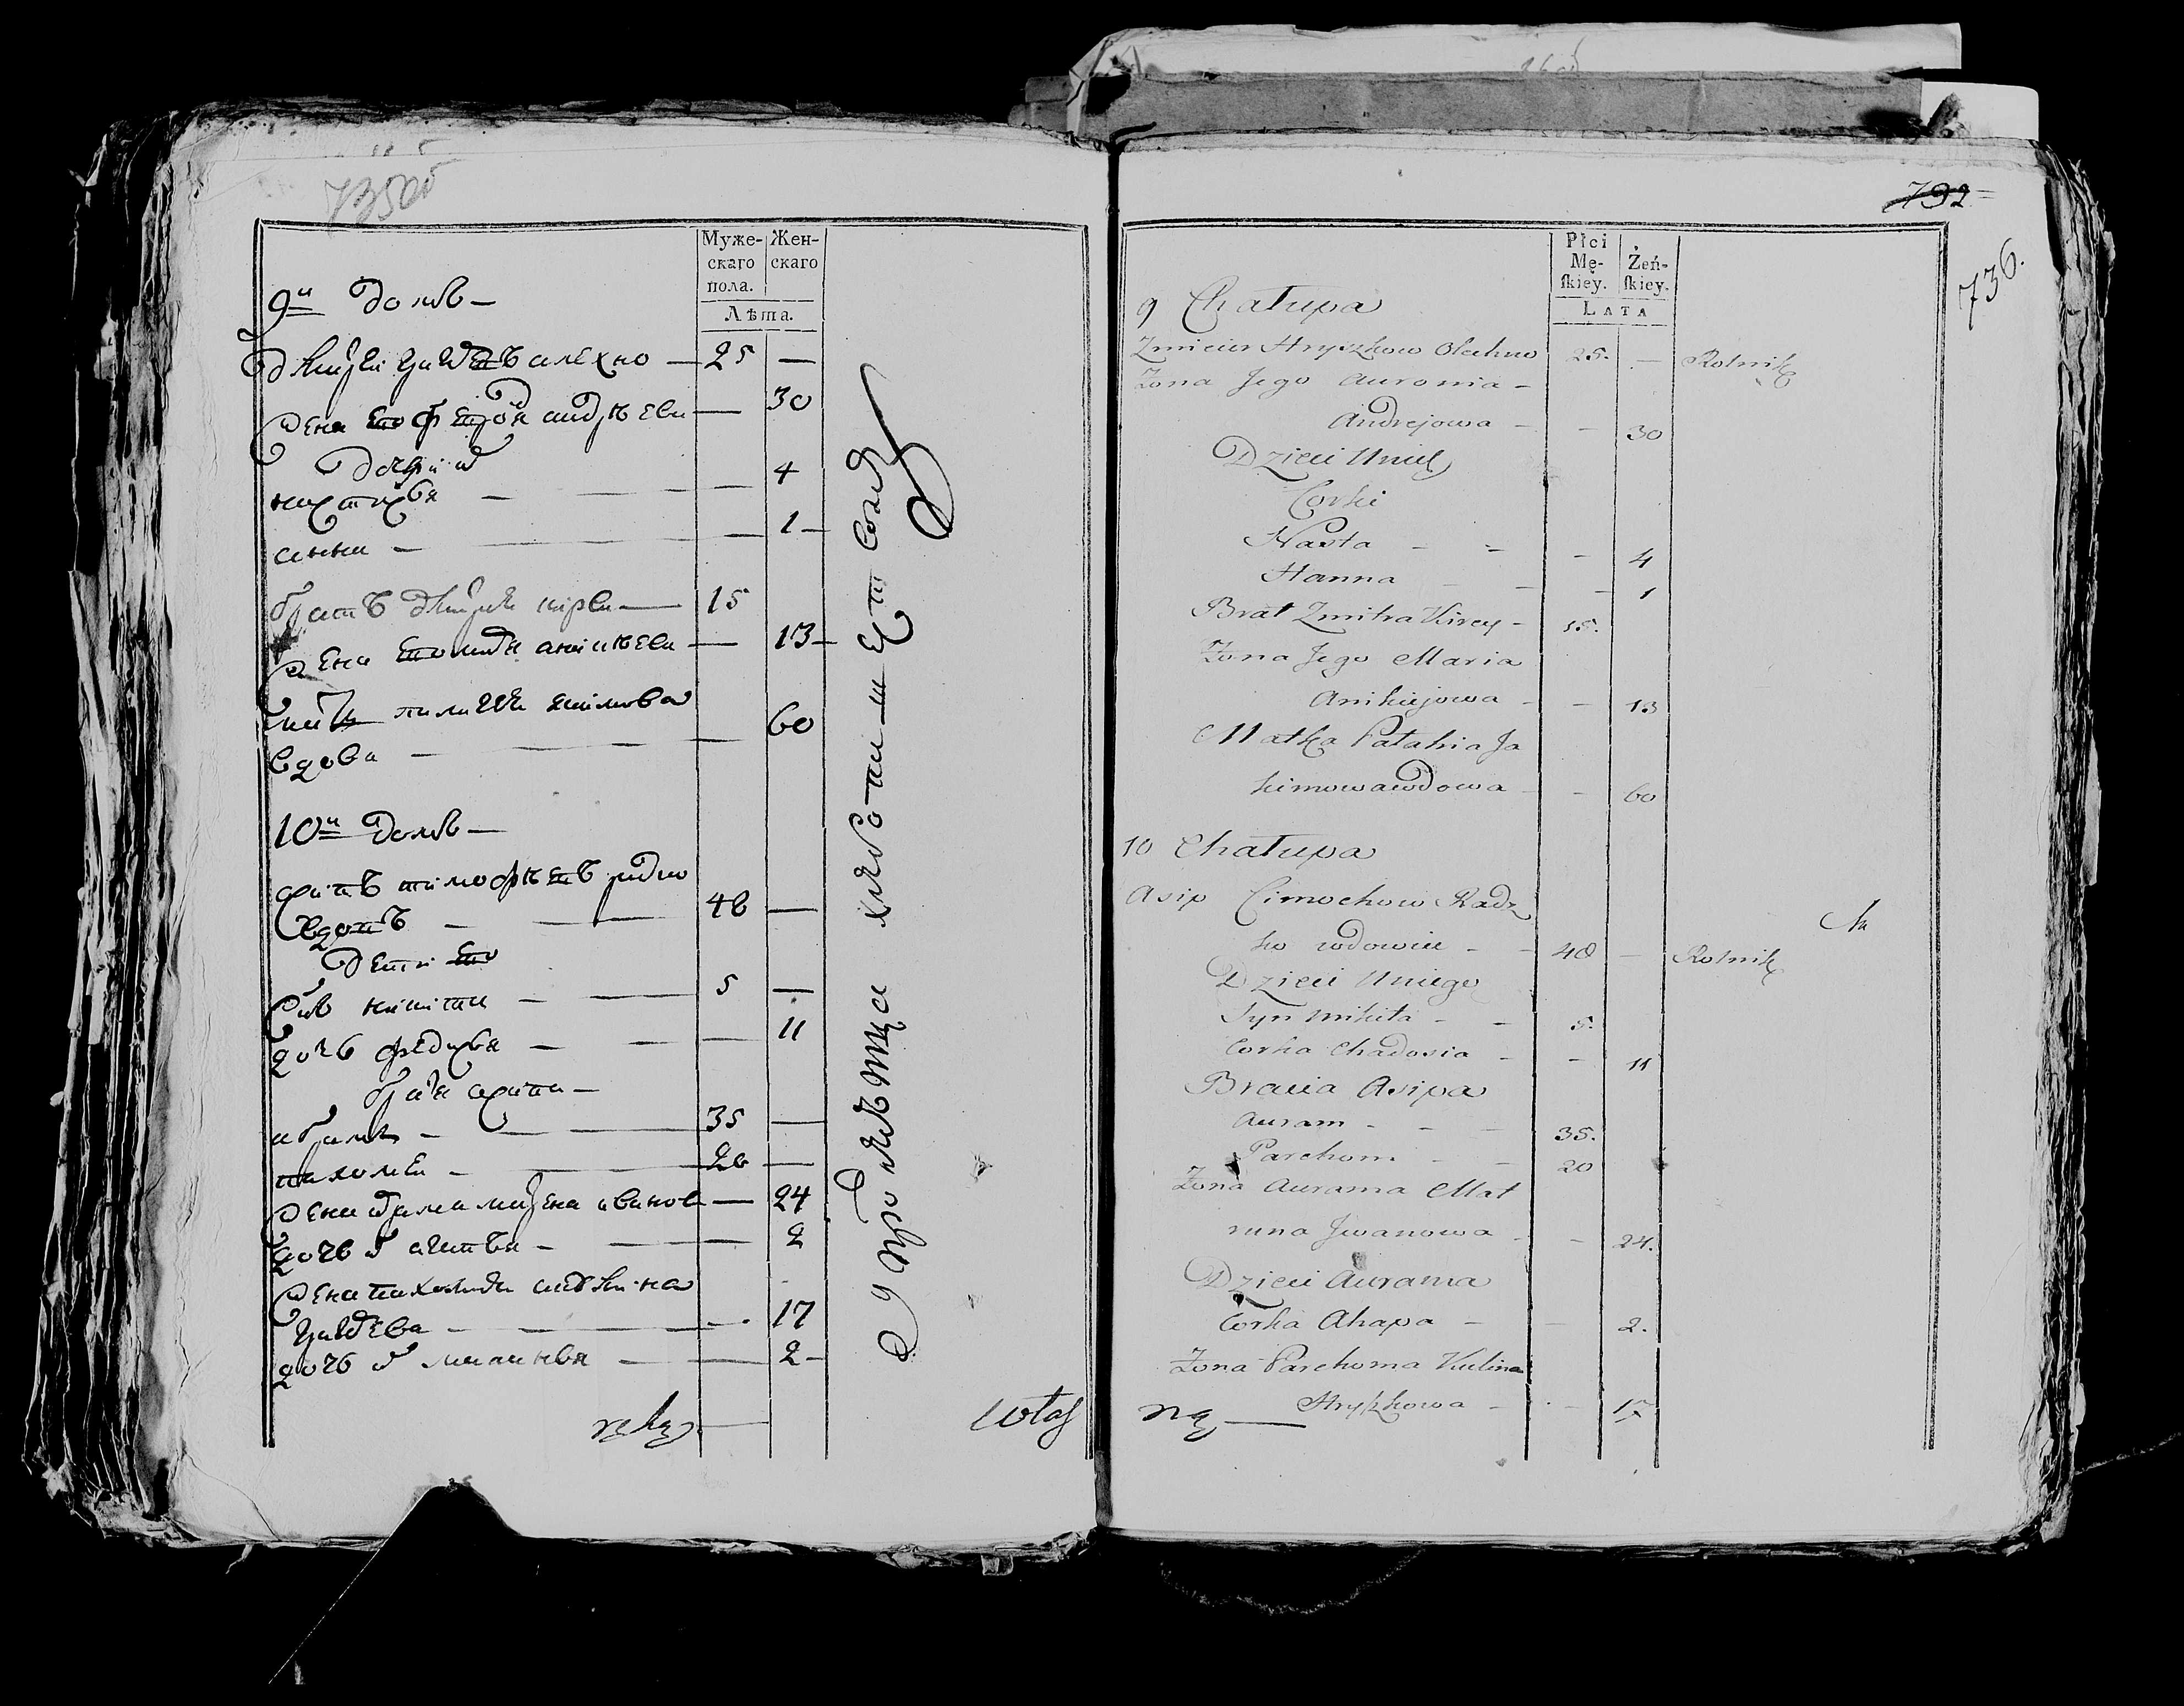 735об
Муже- Жен-
скаго скаго
пола.
Лѣта.
9й домъ —
дмитрей алехно — 25 —
жена его андрѣева — 30
дочери
настасья — 4
анна — 1 —
братъ дмитрея кирей — 15
жена его аникѣева — 13 —
якимова
вдова — 60
10й домъ —
осипъ тимофѣевъ радко
вдовъ — 48 —
дети его
сынъ никита — 5 —
дочь федосья — 11
братья осипа —
абрамъ — 35 —
пахомей — 26 —
жена абрама иванова — 24
дочь агапья — 2
жена пахомея акулина
— 17
дочь — 2 —
упражняется хлебопашеством
ręką
792
736.
Płci
Mę- Żeń-
ſkiey. ſkiey.
LATA
9 Chałupa
Zmicier Hryszkow Olechno 25. — Rolnik
Zona Jego Auronia —
Andrejowa — — 30
Dzieci Unich
Corki
Nasta — — — 4
Hanna — — — 1
Brat Zmitra Kirey — 15.
Zona Jego Maria
Anikiejowa — — 13
Matka Pałahia Ja
kimowa wdowa — — 60
10 Chałupa
Asip Cimochow Radz
ko wdowiec — — 48 — Rolnik
Na
Dzieci Uniego
Syn Mikita — — 5.
Corka Chadosia — — 11
Bracia Asipa
Auram — — — 35.
Parchom — — 20
Zona Aurama Mat
runa Jwanowa — — 24.
Dzieci Aurama
Corka Ahapa — — 2.
Zona Parchoma Kulina
Hryszkowa — — 17